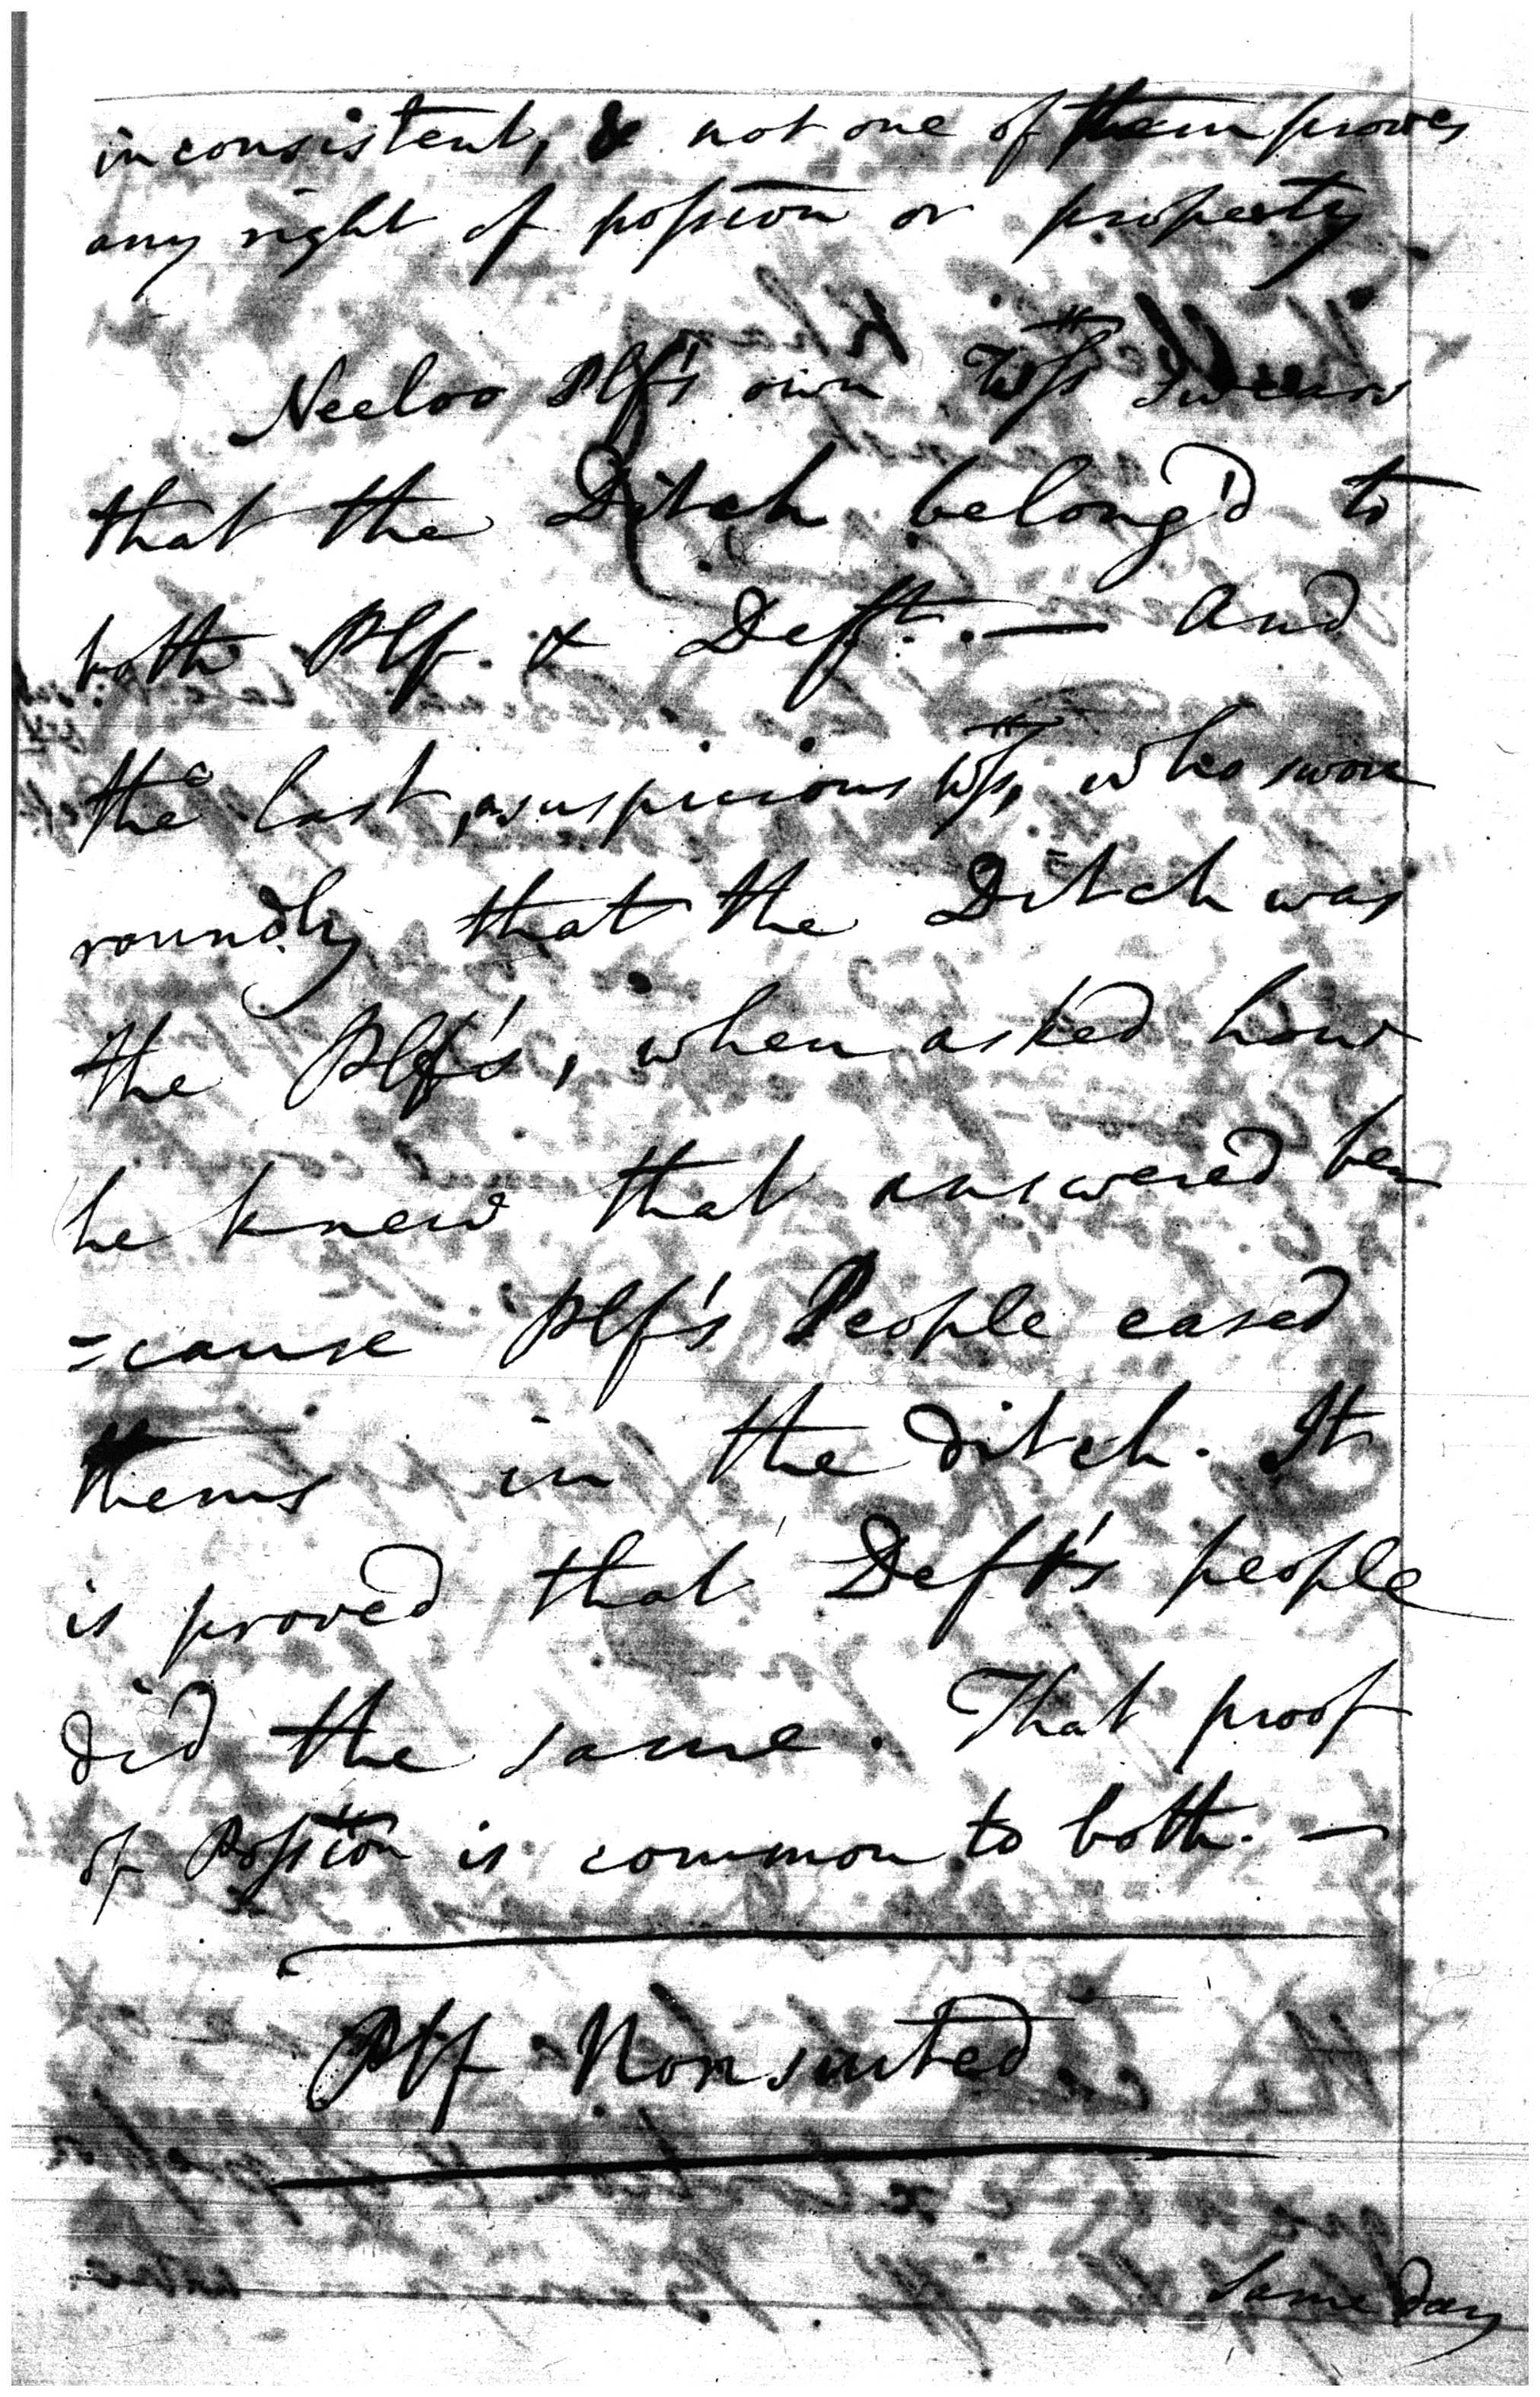 inconsistent, & not one of them proves
any right of possion or property
Neeloo Plf's own Wss swears
that the Ditch belong'd to
both Plf. & Deft. — And
the last, suspicious Wss, who swore
roundly that the Ditch was
the Plf's, when asked how
he knew that answered be
=cause Plf's People eased
thems in the ditch. It
is proved that Deft's people
did the same. That proof
of Possion is common to both. —
Plf Nonsuited
Same day